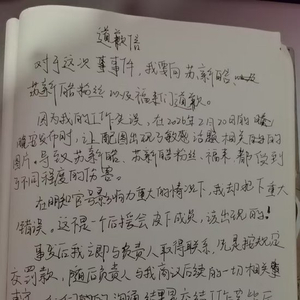 道歉信
对于这次事事件，我要向苏新皓
苏新皓粉丝以及福来们道歉。
因为我的工作失误，在2026年2月20日的
发布时，让配图出现了敏感话题相关的
图片。导致苏新皓、苏新皓粉丝、福来都受到
了不同程度的伤害。
在明知官号影响力重大的情况下，我却犯下重大
错误。这不是一个后援会皮下成员，该出现的。
事发后我立即与负责人取得联系，先是按规定
交罚款，随后负责人与我商议后续的一切相关事